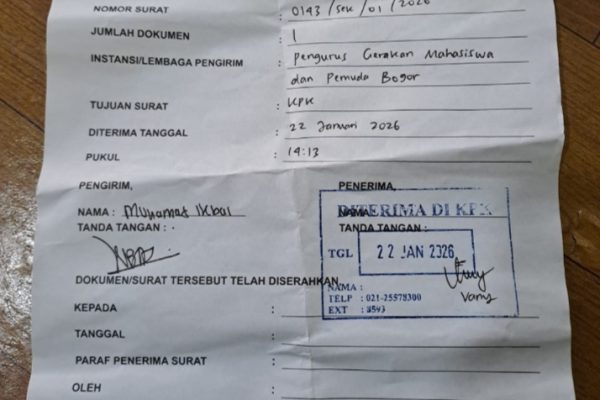 NOMOR SURAT : 0143/sek/01/2026
JUMLAH DOKUMEN : 1
INSTANSI/LEMBAGA PENGIRIM : Pengurus Gerakan Mahasiswa
dan Pemuda Bogor
TUJUAN SURAT : KPK
DITERIMA TANGGAL : 22 Januari 2026
PUKUL : 14:13
PENGIRIM, PENERIMA,
NAMA : Muhamat Ikbal NAMA
DITERIMA DI KPK
TANDA TANGAN : TANDA TANGAN :
TGL 22 JAN 2026
DOKUMEN/SURAT TERSEBUT TELAH DISERAHKAN
NAMA :
KEPADA :
TELP : 021-25578300
EXT : 8593
TANGGAL :
PARAF PENERIMA SURAT :
OLEH :